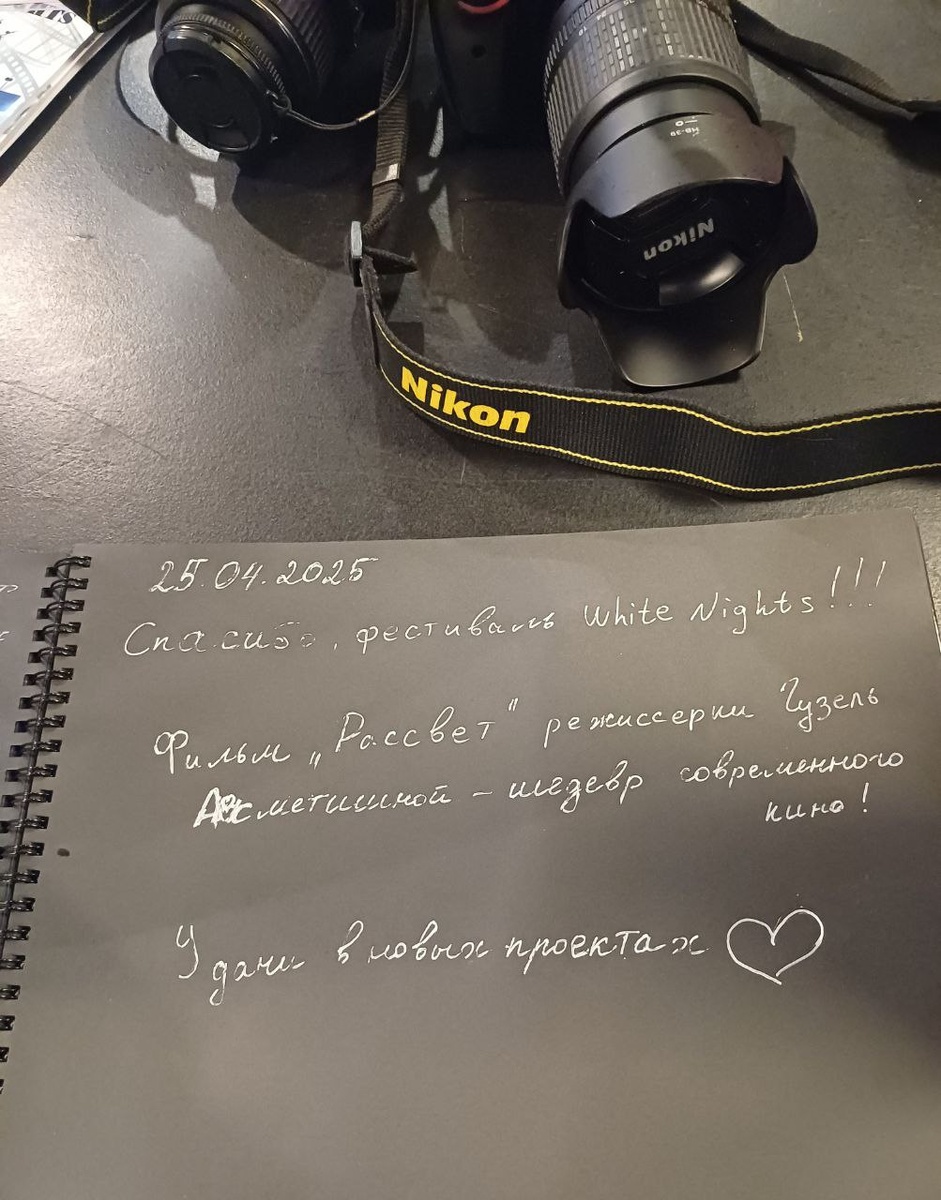 MTS
HB-39
Nikon
Nikon
25.04.2025
Спасибо, фестиваль White Nights!!!
Фильм „Рассвет" режиссерки Гузель
- шедевр современного
кино!
Удачи в новых проектах